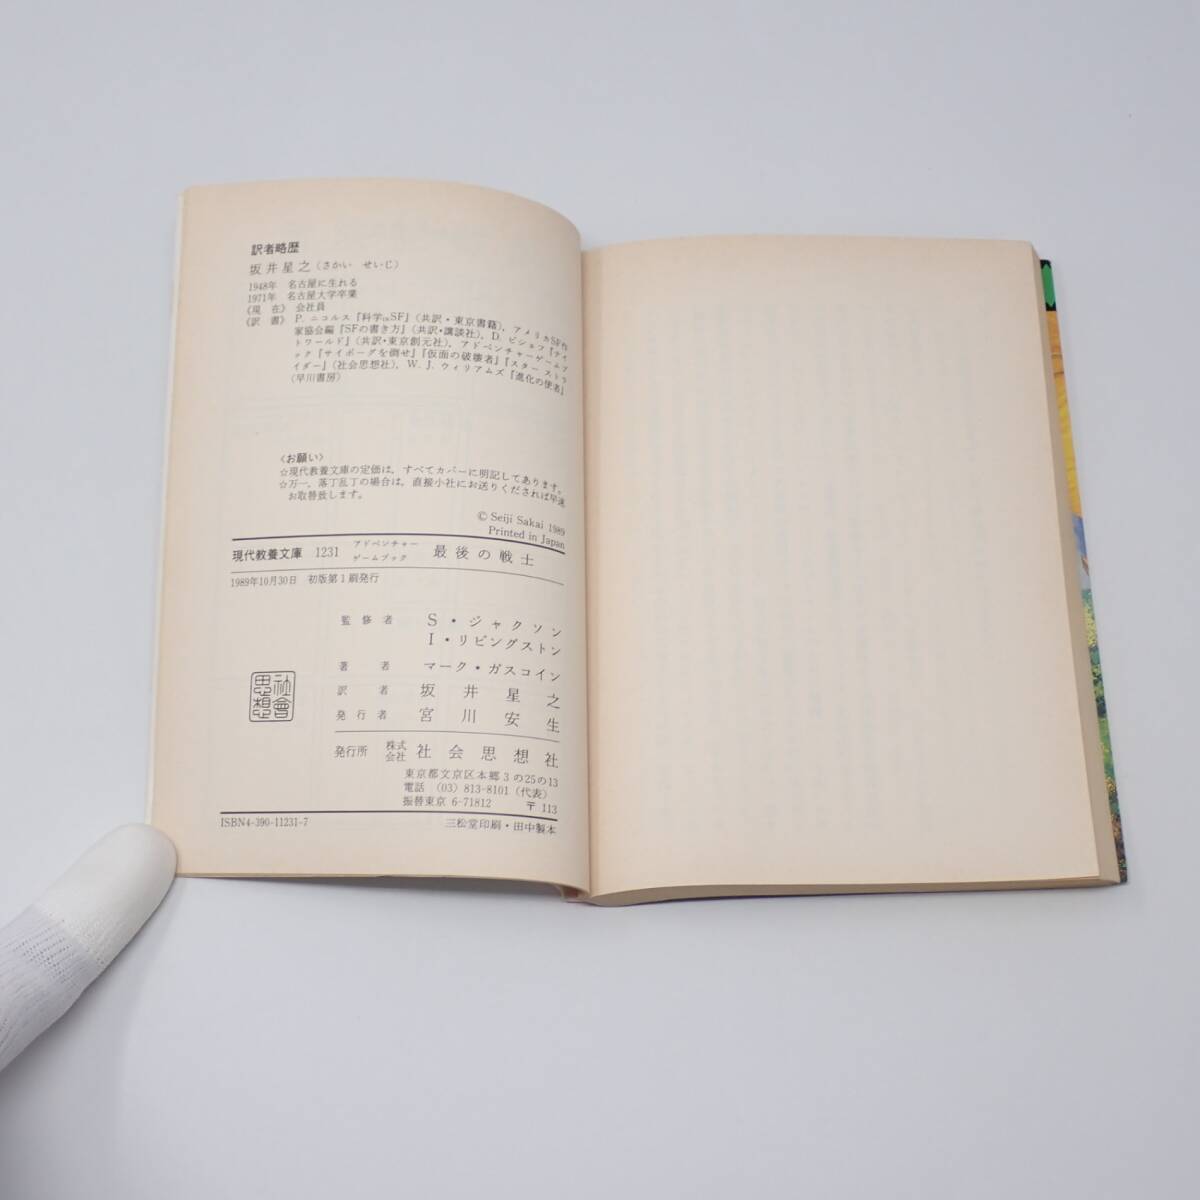 訳者略歴
坂井星之(さかい せいじ)
1948年 名古屋に生れる
1971年 名古屋大学卒業
《現在》 会社員
《訳書》 P.ニコルス『科学inSF』(共訳・東京書籍),アメリカSF作
家協会編『SFの書き方』(共訳・講談社),D.ビショフ『ナイ
トワールド』(共訳・東京創元社),アドベンチャーゲームブ
ック『サイボーグを倒せ』『仮面の破壊者』『スター ストラ
イダー』(社会思想社),W.J.ウィリアムズ『進化の使者』
(早川書房)
〈お願い〉
☆現代教養文庫の定価は,すべてカバーに明記してあります。
☆万一,落丁乱丁の場合は,直接小社にお送りくだされば早速
お取替致します。
© Seiji Sakai 1989
Printed in Japan
現代教養文庫 1231 アドベンチャーゲームブック 最後の戦士
1989年10月30日 初版第1刷発行
監修者 S・ジャクソン
I・リビングストン
著者 マーク・ガスコイン
訳者 坂井星之
発行者 宮川安生
発行所 株式会社 社会思想社
東京都文京区本郷3の25の13
電話 (03) 813-8101 (代表)
振替東京 6-71812 〒113
社會思想
ISBN4-390-11231-7 三松堂印刷・田中製本